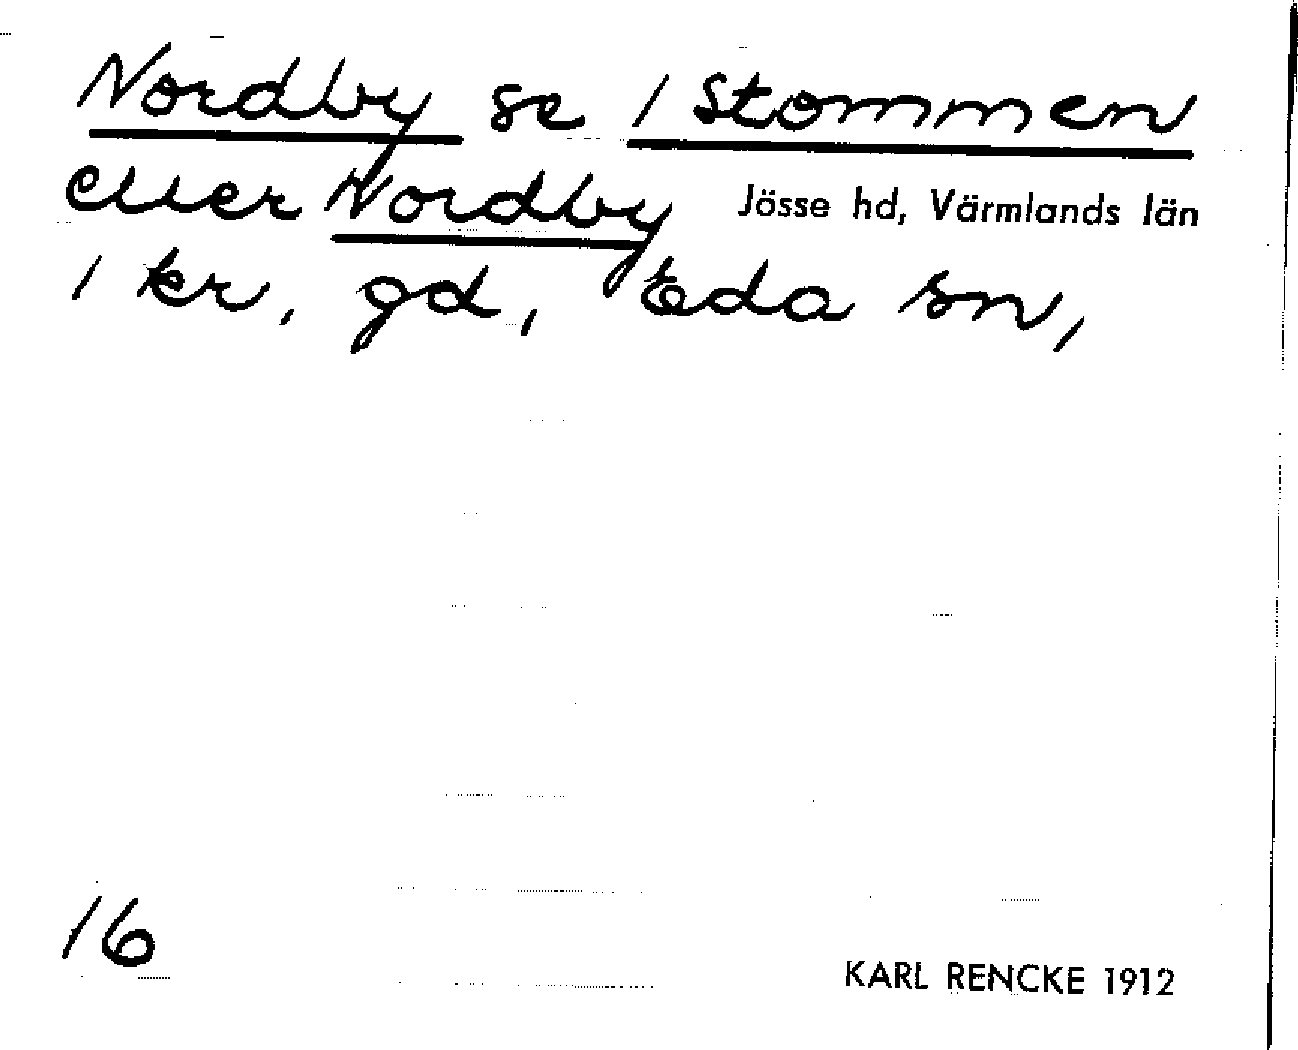 Nordby se 1 Stommen
eller Nordby Jösse hd, Värmlands län
1 kr, gd, Eda sn,
16
KARL RENCKE 1912